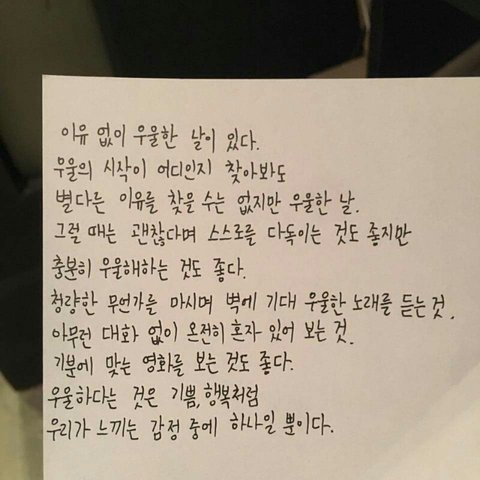 이유 없이 우울한 날이 있다.
우울의 시작이 어디인지 찾아봐도
별다른 이유를 찾을 수는 없지만 우울한 날.
그럴 때는 괜찮다며 스스로를 다독이는 것도 좋지만
충분히 우울해하는 것도 좋다.
청량한 무언가를 마시며 벽에 기대 우울한 노래를 듣는 것.
아무런 대화 없이 온전히 혼자 있어 보는 것.
기분에 맞는 영화를 보는 것도 좋다.
우울하다는 것은 기쁨, 행복처럼
우리가 느끼는 감정 중에 하나일 뿐이다.